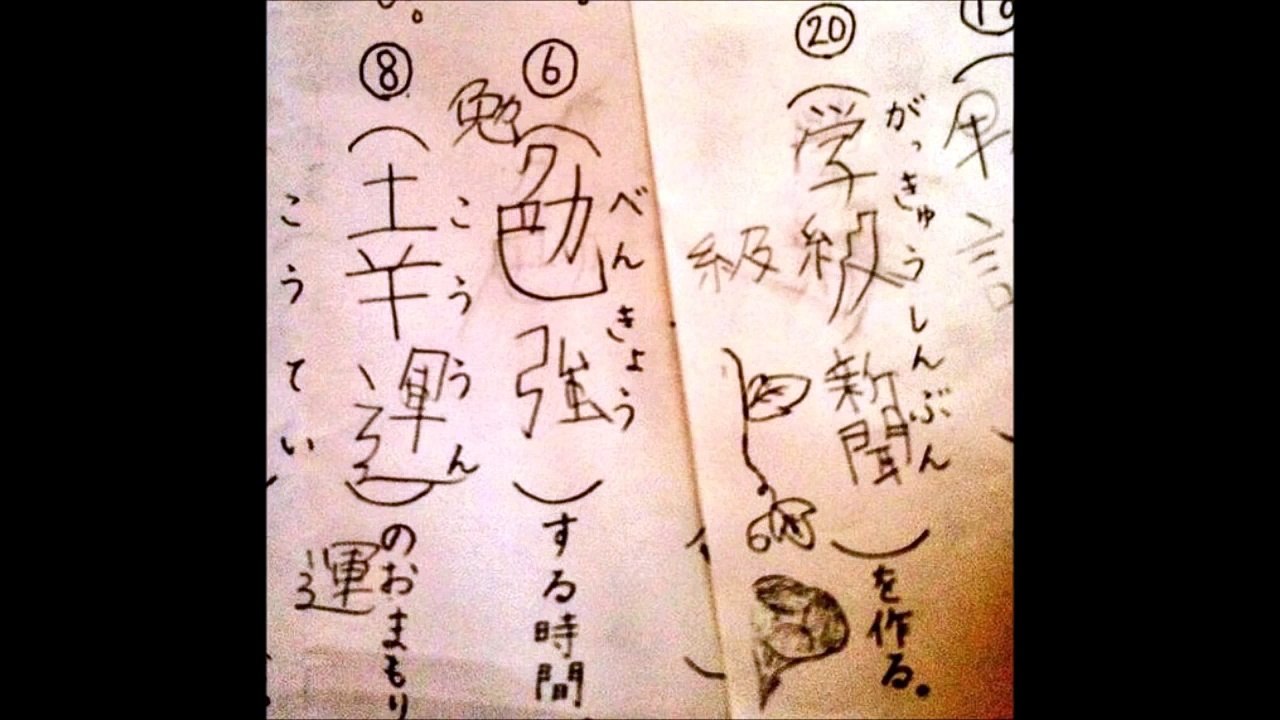 ⑳
(学級新聞)を作る。
がっきゅうしんぶん
級
⑥
(勉強)する時間
べんきょう
勉
⑧
(幸運)のおまもり
こううん
運
こうてい